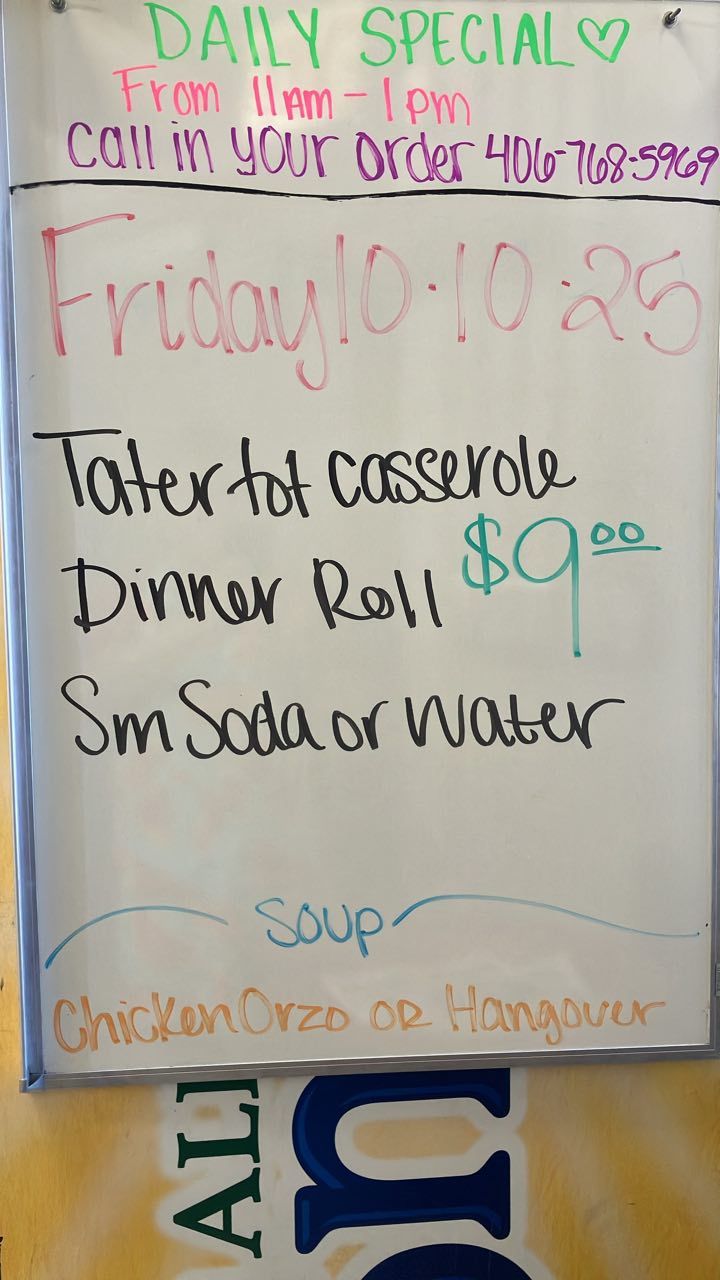 DAILY SPECIAL♡
From 11am-1pm
Call in your order 406-768-5969
Friday 10.10.25
Tater tot casserole
$9.00
Dinner Roll
Sm Soda or Water
Soup
Chicken Orzo OR Hangover
ALI
on